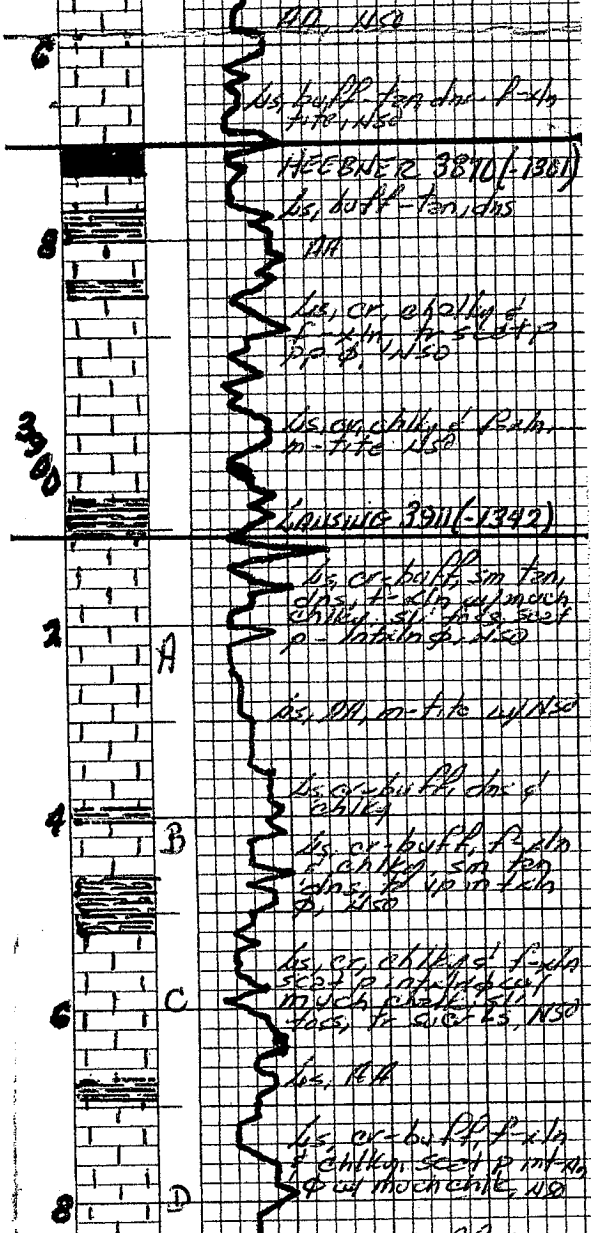 AA, NSO
6
Ls, buff-tan, dns-f-xln
tite, NSO
HEEBNER 3870 (-1301)
Ls, buff-tan, dns
8
AA
Ls, cr, chalky &
f-xln, tr scat p
p.p φ, NSO
Ls, cr, chlky & f-xln,
m-tite NSO
3900
LANSING 3911 (-1342)
Ls, cr-buff, sm tan,
dns, f-xln w/ much
chlky, sli foss, scat
p-intxln φ, NSO
2
A
Ls, AA, m-tite w/ NSO
Ls cr-buff, dns &
chlky
4
B
Ls, cr-buff, f-xln
& chlky, sm tan
dns, tr vp intxln
φ, NSO
Ls, cr, chlky & f-xln
scat p intxln φ w/
much chalk, sli
foss, tr sucr Ls, NSO
6
C
Ls, AA
Ls, cr-buff, f-xln
& chlky, scat p int-xln
φ w/ much chlk, NSO
8
D